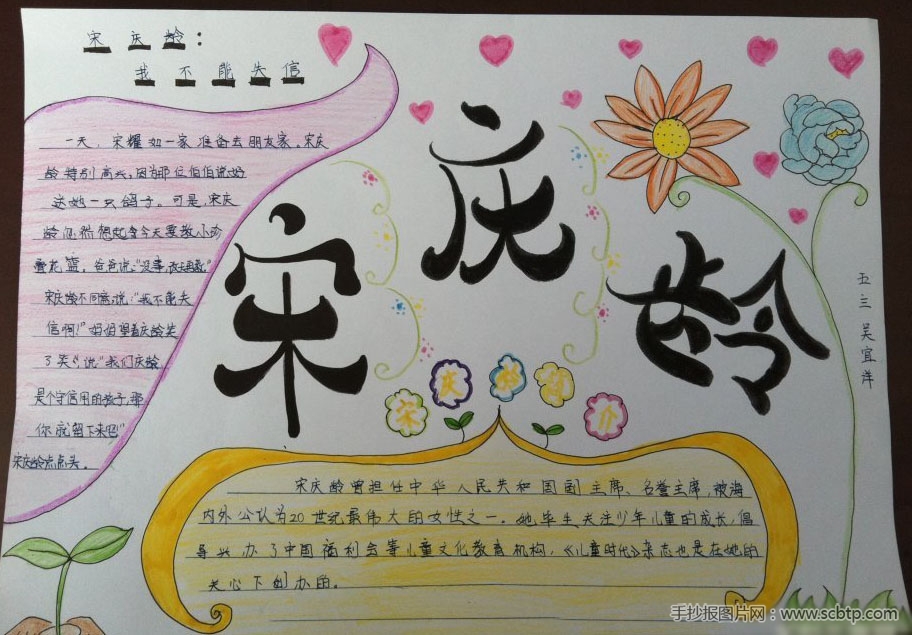 宋庆龄：
我不能失信
一天，宋耀如一家准备去朋友家。宋庆
龄特别高兴，因为那位伯伯说好
送她一只鸽子。可是，宋庆
龄忽然想起今天要教小珍
叠花篮，爸爸说：“没事，改
宋庆龄不同意，说：“我不能失
信啊！”妈妈望着庆龄笑
了笑，说“我们庆龄
是个守信用的孩子，那
你就留下来吧”
宋庆龄点点头。
宋庆龄
宋庆龄简介
宋庆龄曾担任中华人民共和国副主席、名誉主席，被海
内外公认为20世纪最伟大的女性之一。她毕生关注少年儿童的成长，倡
导兴办了中国福利会等儿童文化教育机构，《儿童时代》杂志也是在她的
关心下创办的。
五三吴宜洋
手抄报图片网：www.scbtp.com